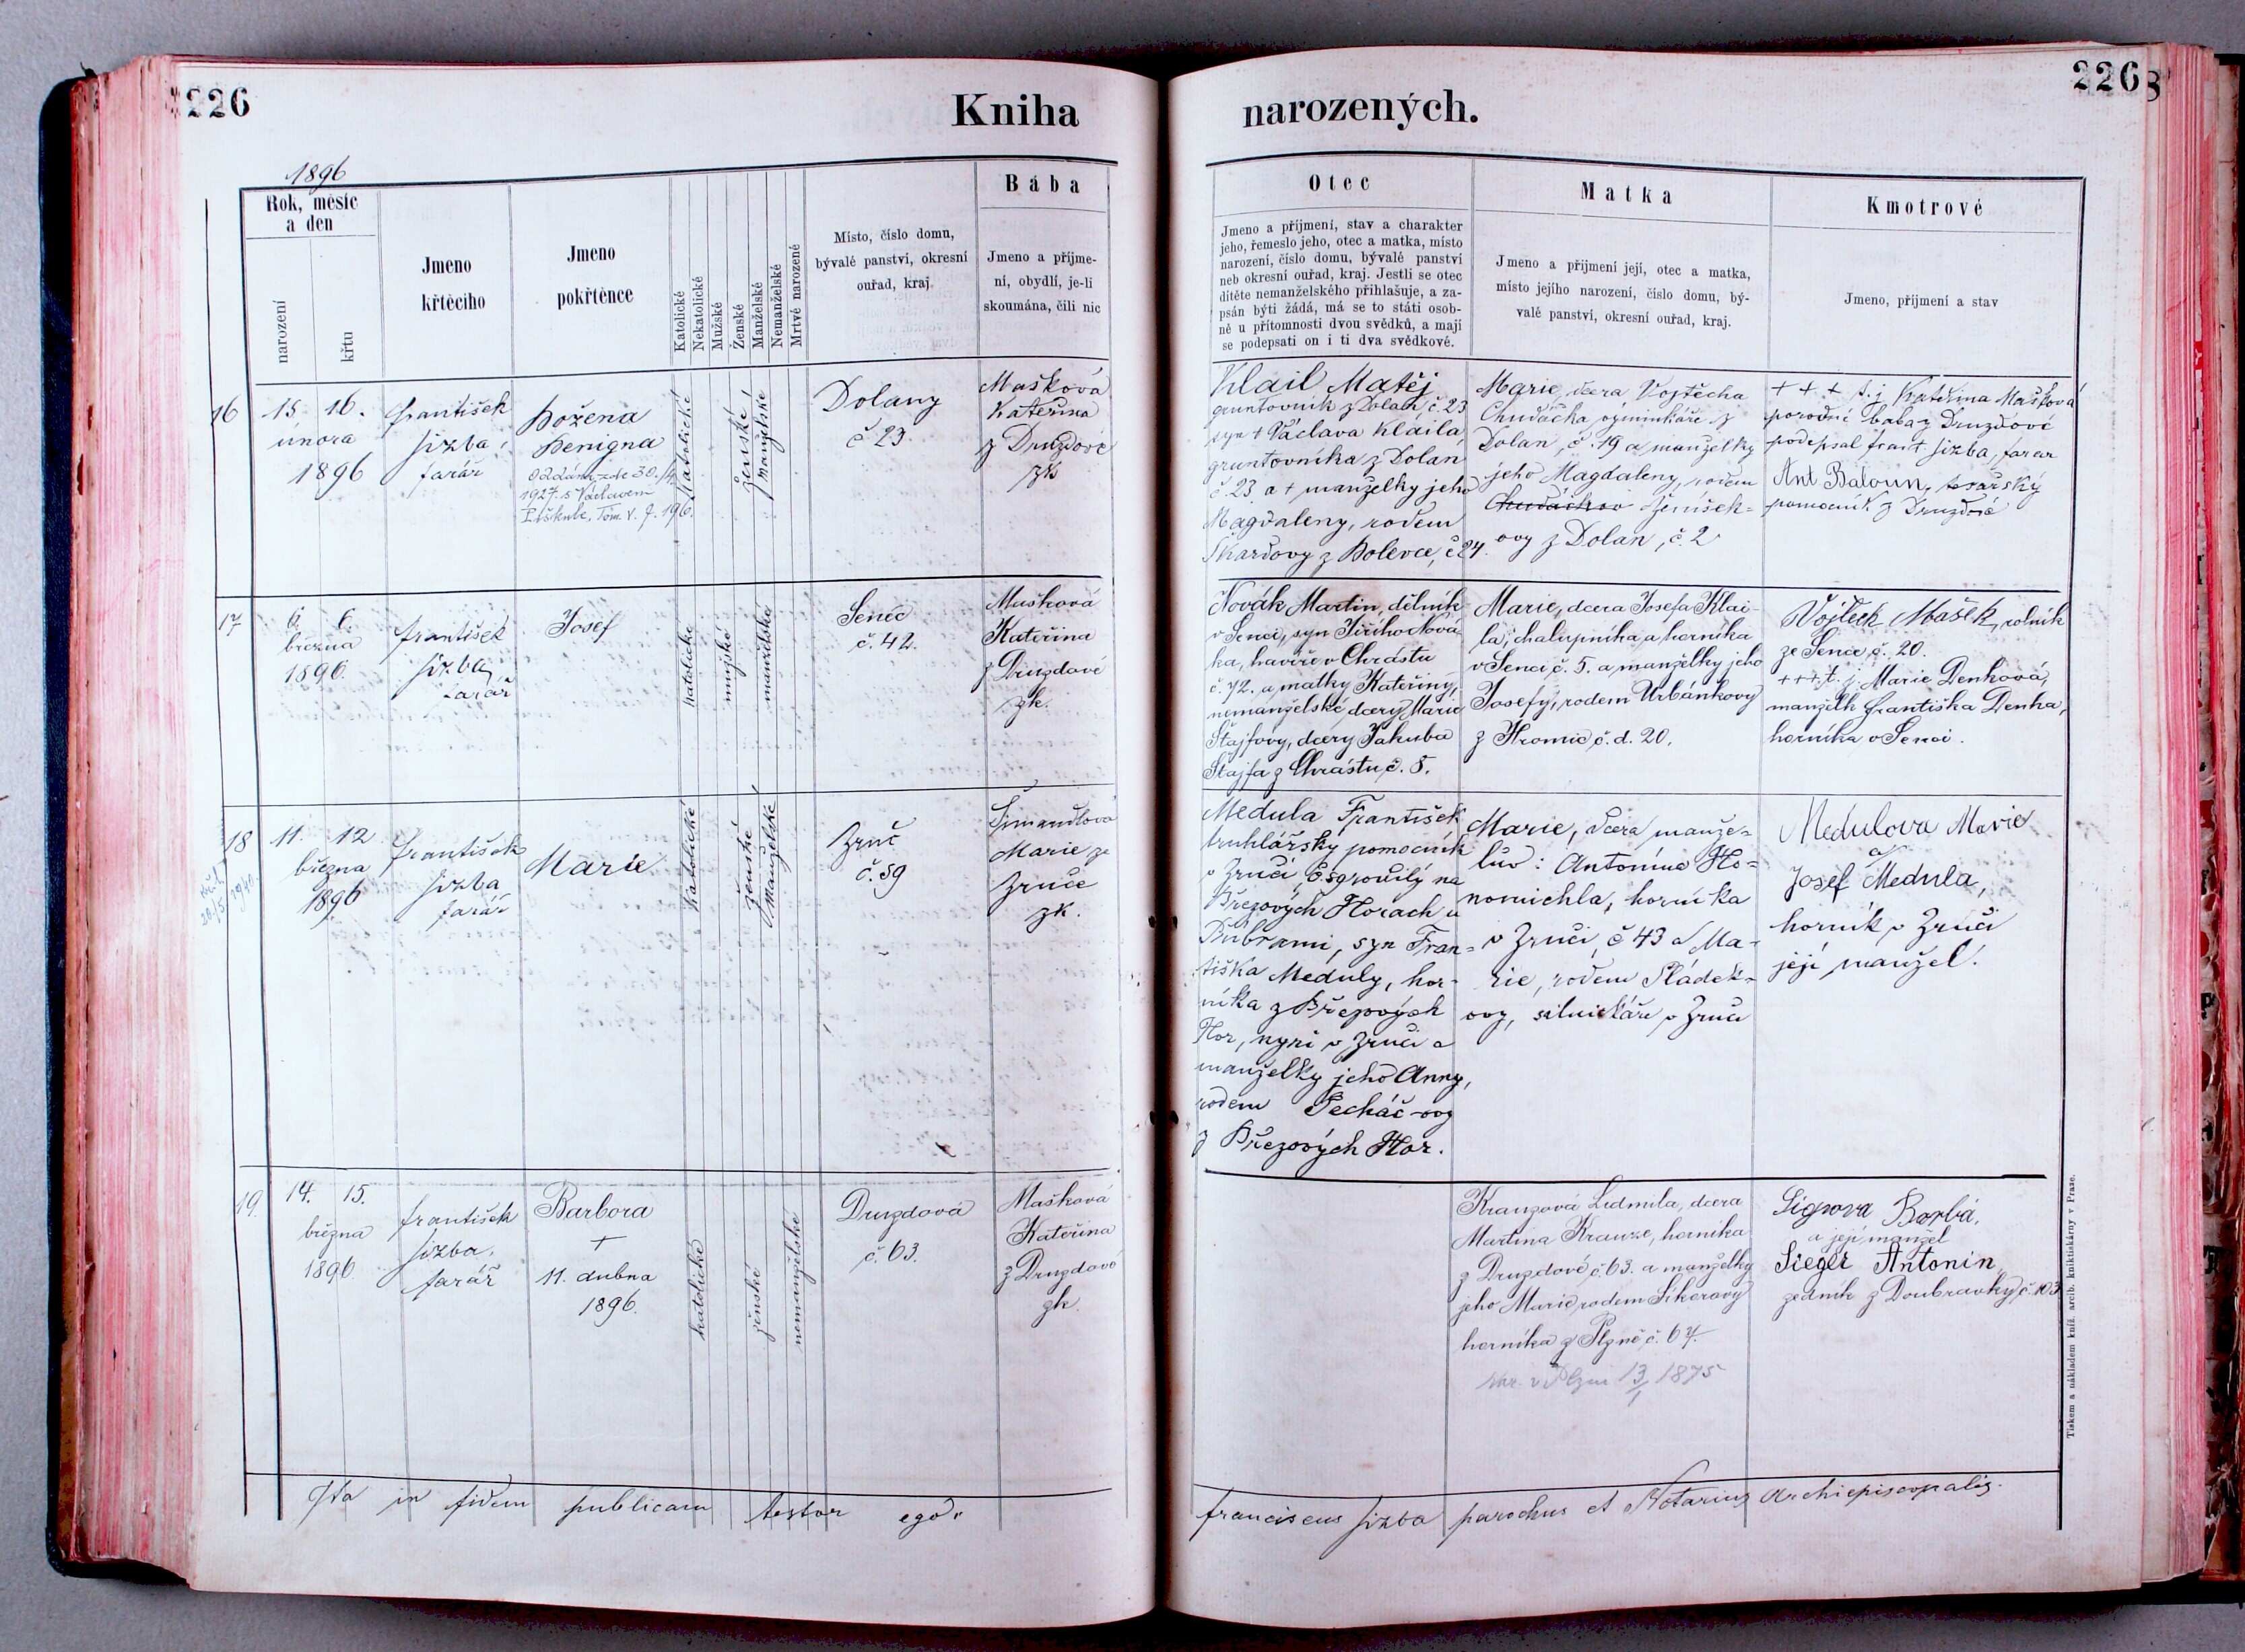 226
Kniha
narozených.
226
8
1896
Rok, měsíc
a den
narození
křtu
Jmeno
křtěcího
Jmeno
pokřtěnce
Katolické
Nekatolické
Mužské
Ženské
Manželské
Nemanželské
Mrtvě narozené
Místo, číslo domu,
bývalé panství, okresní
ouřad, kraj.
Bába
Jmeno a příjme-
ní, obydlí, je-li
skoumána, čili nic
Otec
Jmeno a příjmení, stav a charakter
jeho, řemeslo jeho, otec a matka, místo
narození, číslo domu, bývalé panství
neb okresní ouřad, kraj. Jestli se otec
dítěte nemanželského přihlašuje, a za-
psán býti žádá, má se to státi osob-
ně u přítomnosti dvou svědků, a mají
se podepsati on i ti dva svědkové.
Matka
Jmeno a příjmení její, otec a matka,
místo jejího narození, číslo domu, bý-
valé panství, okresní ouřad, kraj.
Kmotrové
Jmeno, příjmení a stav
16
15. 16.
února
1896
František
Sizba,
farář
Božena
Benigna
Oddána zde 30./4.
1927. s Václavem
Tom. V. f. 196.
katolické
ženské
manželské
Dolany
č 23.
Mašková
Kateřina
z Druzdové
zk
Klail Matěj
gruntovník z Dolan č. 23
syn † Václava Klaila,
gruntovníka z Dolan
č. 23 a † manželky jeho
Magdaleny, rodem
Škardovy z Bolevce, č 24.
Marie, dcera Vojtěcha
Chudáčka, výminkáře z
Dolan, č. 19 a manželky
jeho Magdaleny, rodem
Chudáčkov Ženíšek-
ovy z Dolan, č. 2
+ + + t. j. Kateřina Mašková
porodní bába z Druzdové
podepsal Frant Sizba, farář
Ant Baloun, tesařský
pomocník z Druzdové
17
6. 6.
března
1896.
František
Sizba
farář
Josef
katolické
mužské
manželské
Senec
č. 42.
Mašková
Kateřina
z Druzdové
zk.
Novák Martin, dělník
v Senci, syn Jiřího Nová-
ka, havíře v Chrástu
č. 72. a matky Kateřiny,
nemanželské dcery Marie
Štajfovy, dcery Jakuba
Štajfa z Chrástu č. 8.
Marie, dcera Josefa Klai-
la, chalupníka a horníka
v Senci č. 5. a manželky jeho
Josefy, rodem Urbánkovy
z Hromic č. d. 20.
Vojtěch Mašek, rolník
ze Sence č. 20.
+++ t. j. Marie Denková,
manželk Františka Denka,
horníka v Senci.
18
20./5. 1940.
11. 12
března
1896
František
Sizba
farář
Marie
katolické
ženské
manželské
Zruč
č. 59
Šimandlová
Marie ze
Zruče
zk.
Medula František
truhlářský pomocník
v Zruči, č. 59 rodilý na
Březových Horach u
Příbrami, syn Fran-
tiška Meduly, hor-
níka z Březových
Hor, nyní v Zruči a
manželky jeho Anny,
rodem Pecháč-ovy
z Březových Hor.
Marie, dcera manže-
lův: Antonína Ho-
nomichla, horníka
v Zruči, č 43 a Ma-
rie, rodem Sládek-
ovy, silnickáře v Zruči
Medulova Marie
a
Josef Medula,
horník v Zruči
její manžel.
19.
14. 15.
března
1896
František
Sizba,
farář
Barbora
+
11. dubna
1896.
katolické
ženské
nemanželské
Druzdová
č. 63.
Mašková
Kateřina
z Druzdové
zk.
Krauzová Ludmila, dcera
Martina Krauze, horníka
z Druzdové č. 63. a manželky
jeho Marie rodem Sikerovy
horníka z Plzně č. 64.
nar. v Plzni 13/1 1875
Sigrova Barbá.
a její manžel
Sieger Antonín
zedník z Doubravky č. 103
Ita in fidem publicam testor ego:
Franciscus Sizba parochus et Notarius Archiepiscopalis.
Tiskem a nákladem kníž. arcib. knihtiskárny v Praze.